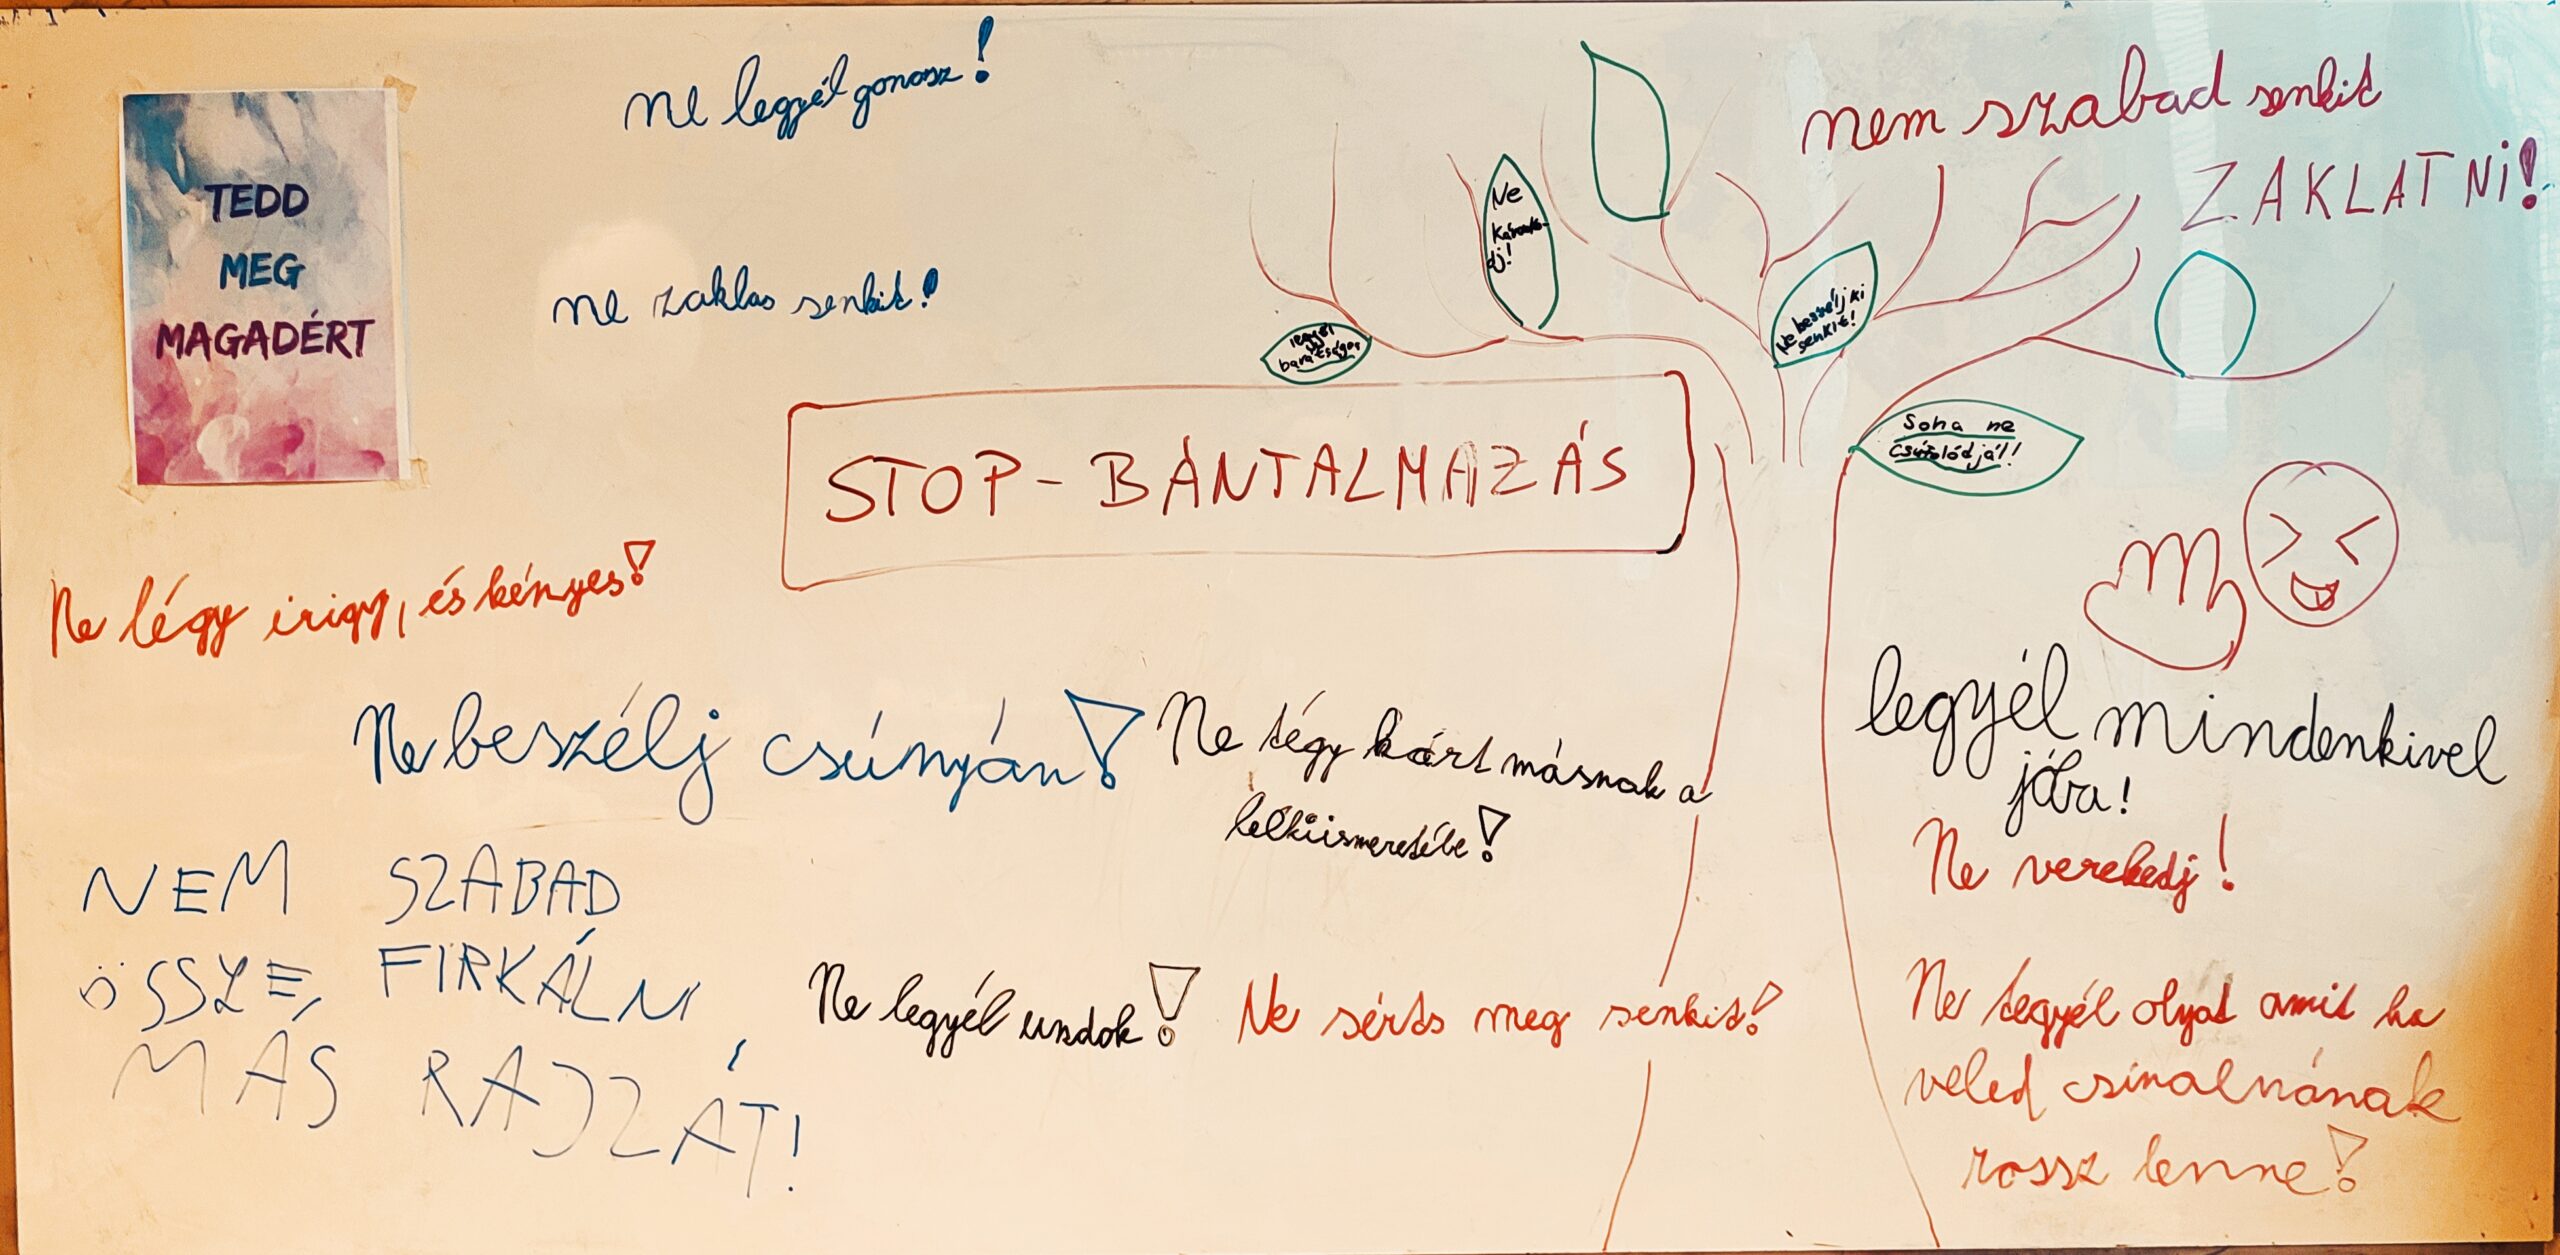 TEDD
MEG
MAGADÉRT
ne legyél gonosz!
ne zaklas senkit!
nem szabad senkit
ZAKLATNI!
Ne
káromko-
dj!
legyél
barátságos
Ne beszélj ki
senkit!
Soha ne
csúfolódjál!
STOP - BÁNTALMAZÁS
Ne légy irigy, és kényes!
Ne beszélj csúnyán!
Ne tégy kárt másnak a
lelkiismeretébe!
legyél mindenkivel
jóba!
Ne verekedj!
NEM SZABAD
ÖSSZE FIRKÁLNI
MÁS RAJZÁT!
Ne legyél undok!
Ne sérts meg senkit!
Ne tegyél olyat amit ha
veled csinálnának
rossz lenne!